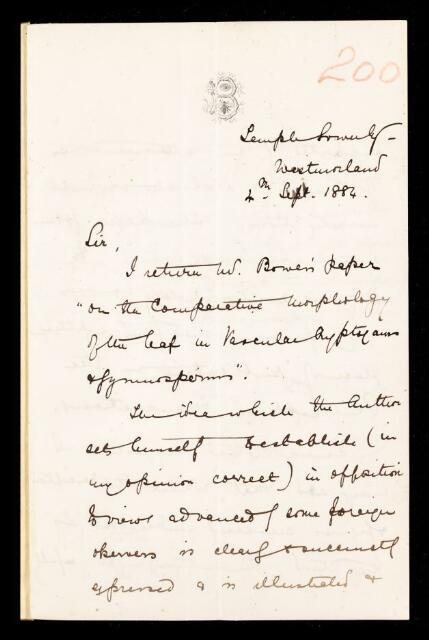 200
B
Temple Sowerby
Westmorland
4th Sept. 1884.
Sir,
I return Mr. Bower's paper
"on the Comparative morphology
of the leaf in Vascular Cryptogams
& Gymnosperms".
The idea which the Author
sets himself to establish (in
my opinion correct) in opposition
to views advanced by some foreign
observers is clearly & succinctly
expressed & is illustrated &